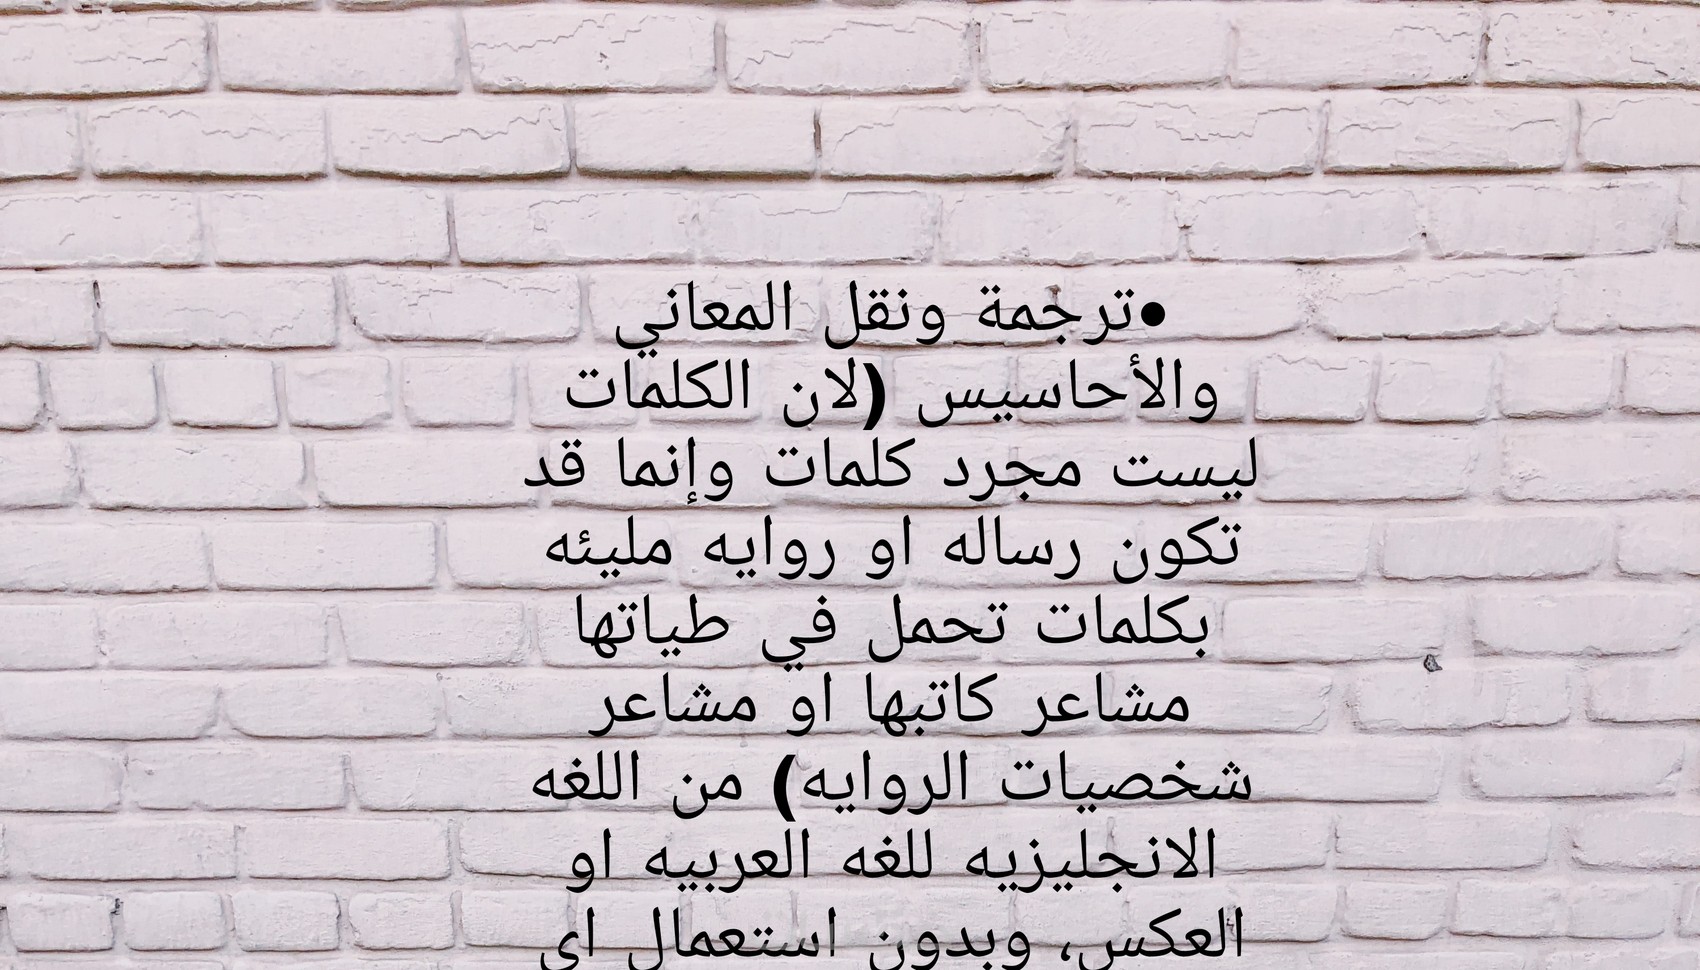 •ترجمة ونقل المعاني
والأحاسيس (لان الكلمات
ليست مجرد كلمات وإنما قد
تكون رساله او روايه مليئه
بكلمات تحمل في طياتها
مشاعر كاتبها او مشاعر
شخصيات الروايه) من اللغه
الانجليزيه للغه العربيه او
العكس، وبدون استعمال اي